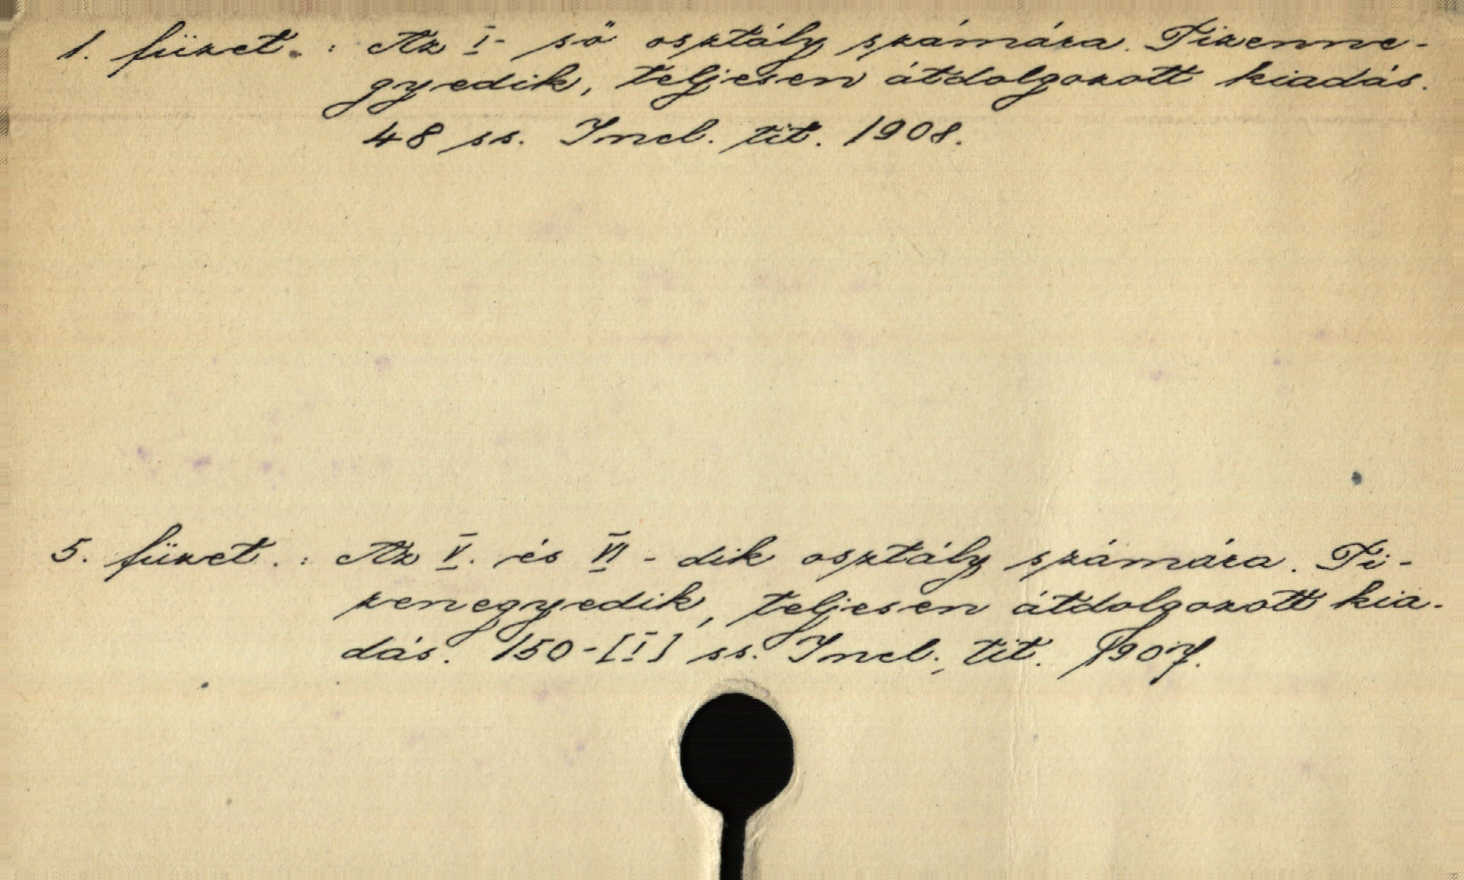 1. füzet. : Az I-ső osztály számára. Tizenne-
gyedik, teljesen átdolgozott kiadás.
48 ss. Incl. tit. 1908.
5. füzet. : Az V. és VI-dik osztály számára. Ti-
zenegyedik, teljesen átdolgozott kia-
dás. 150-[I] ss. Incl. tit. 1907.